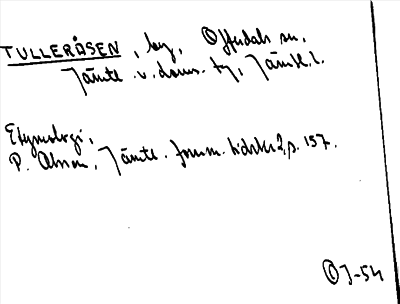 TULLERÅSEN, by, Offerdals sn,
Jämtl. v. doms. tg, Jämtl. l.
Etymologi,
P. Olsson, Jämtl. fornm. tidskr 2, s. 157.
J-54